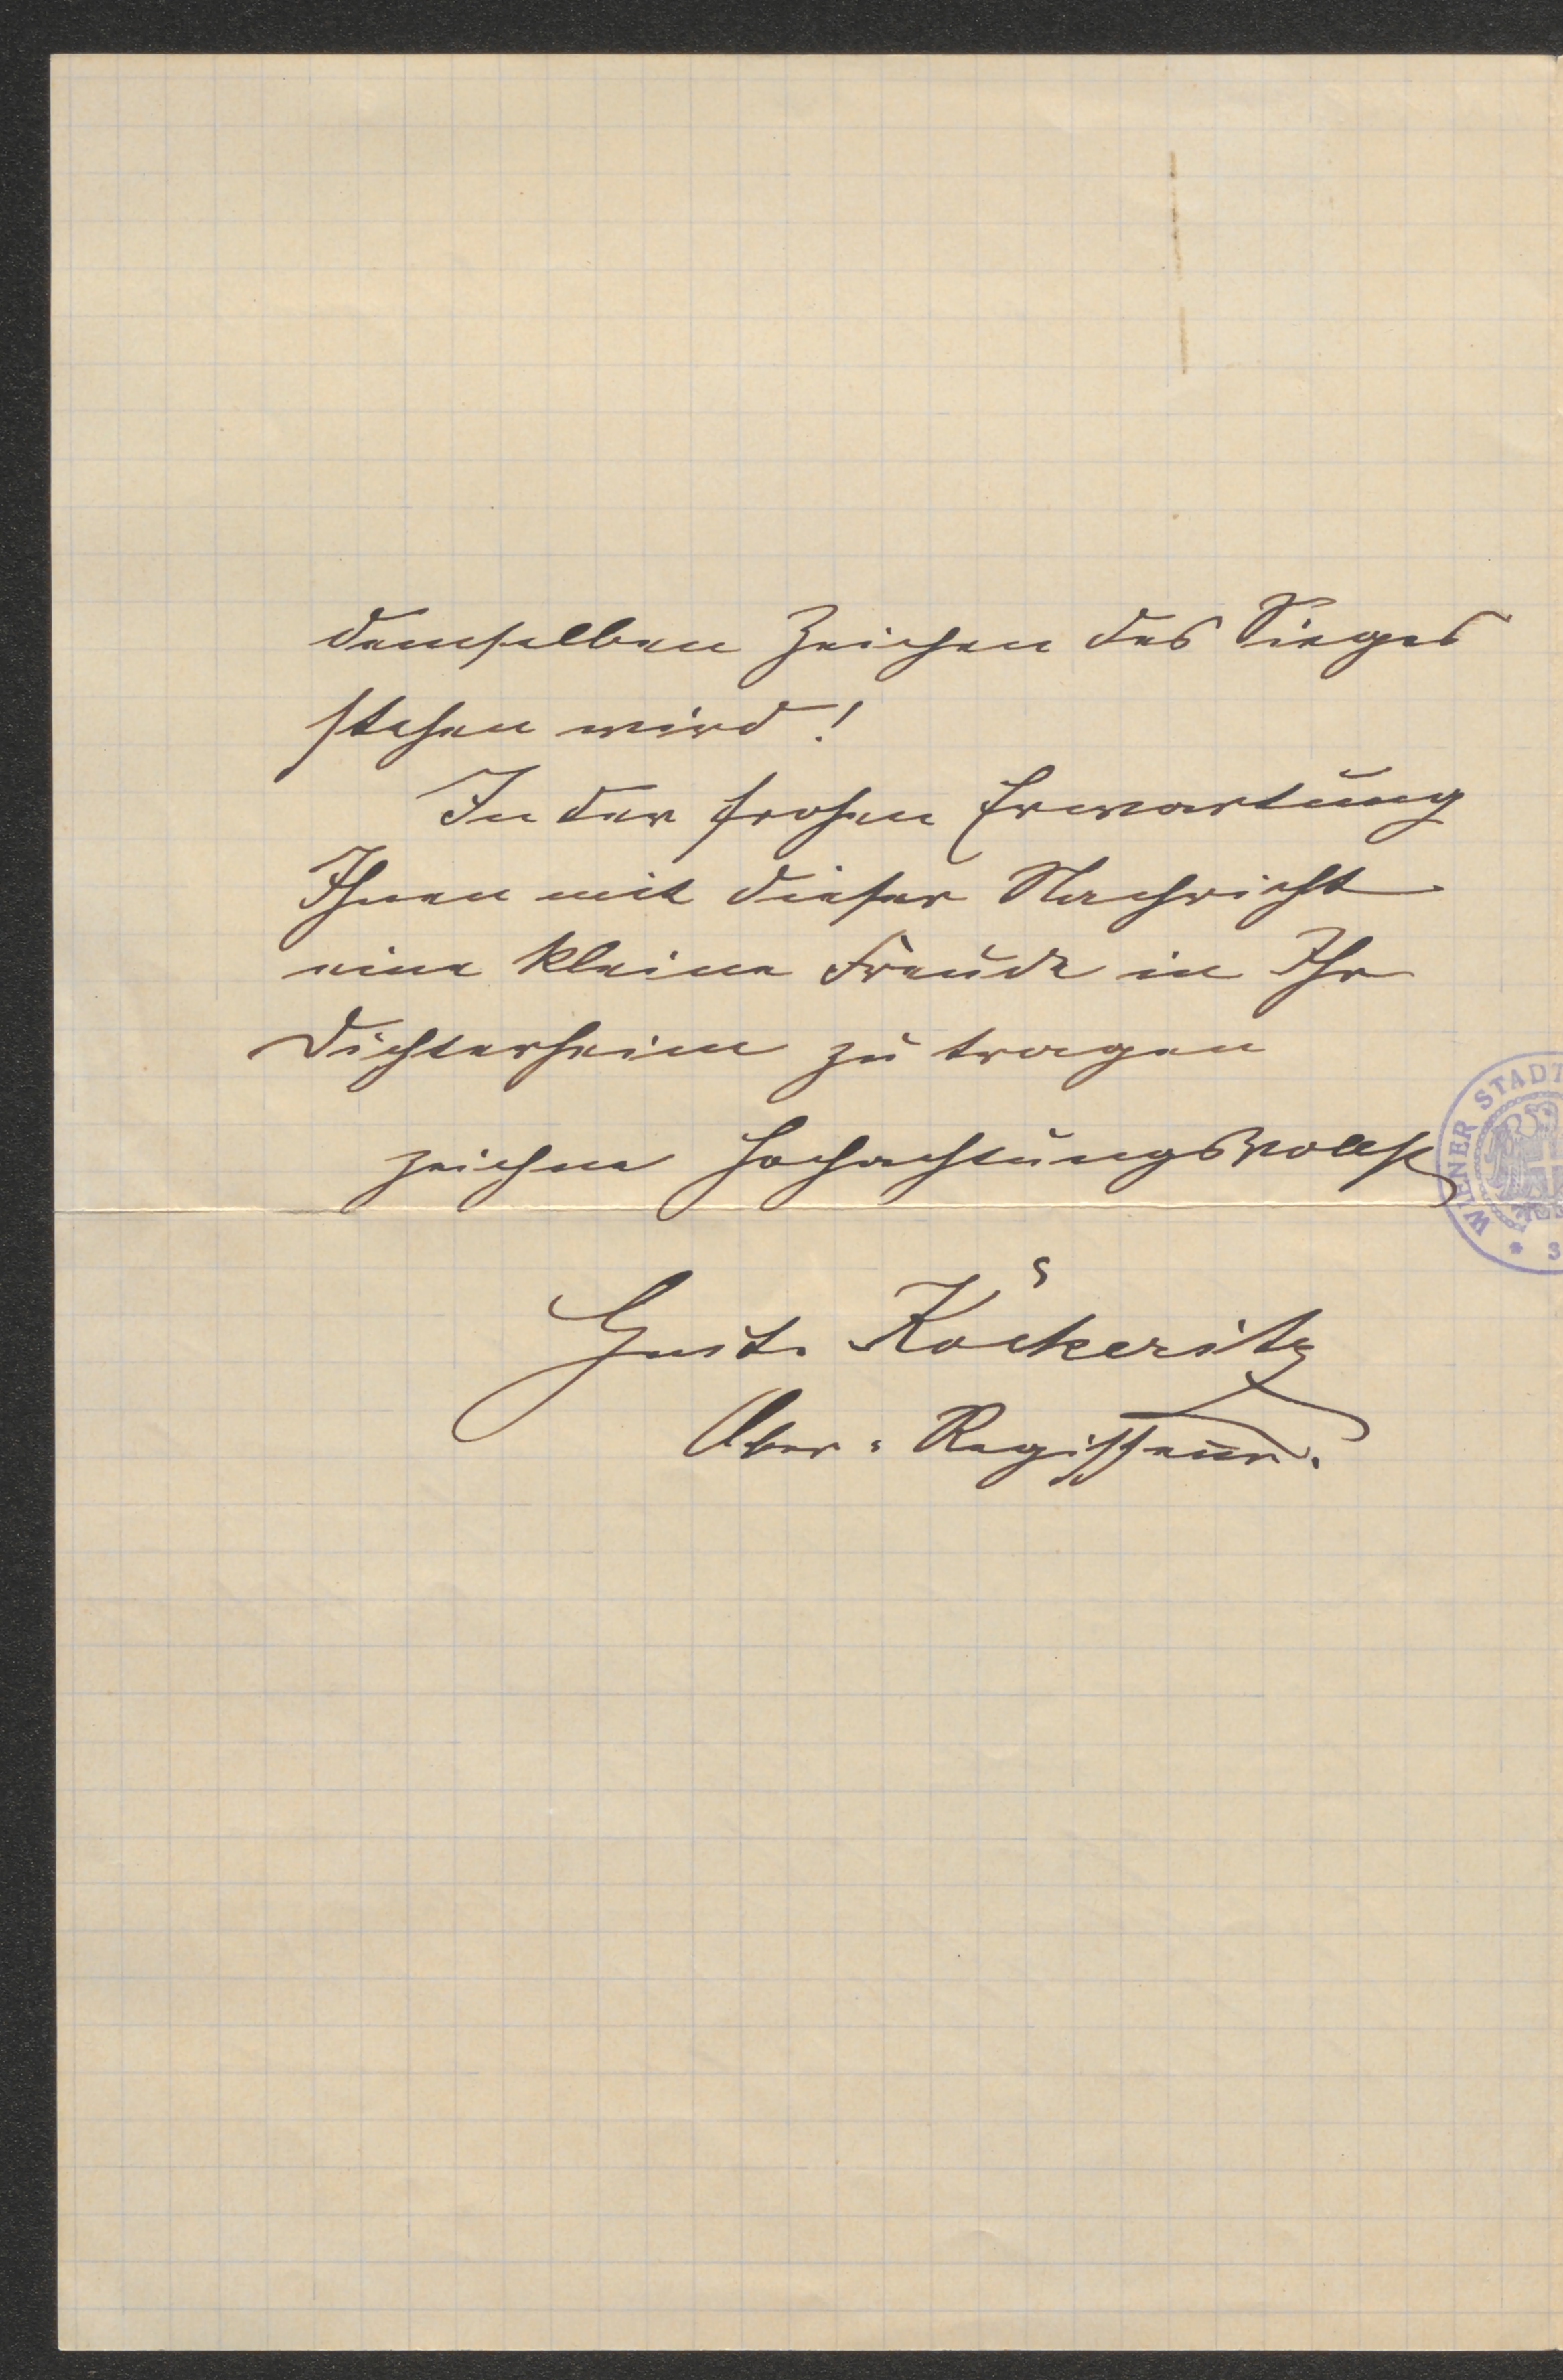 demselben Zeichen des Sieges
stehen wird!
In der frohen Erwartung
Ihnen mit dieser Nachricht
eine kleine Freude in Ihr
Dichterheim zu tragen
zeichne hochachtungsvollst
WIENER STADT
Gust. Köckeritz
Ober-Regisseur.